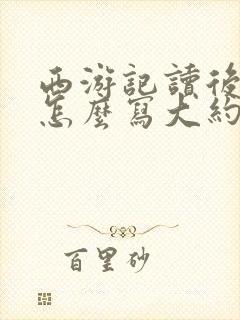 西游記讀後
怎麼寫大約
百里砂